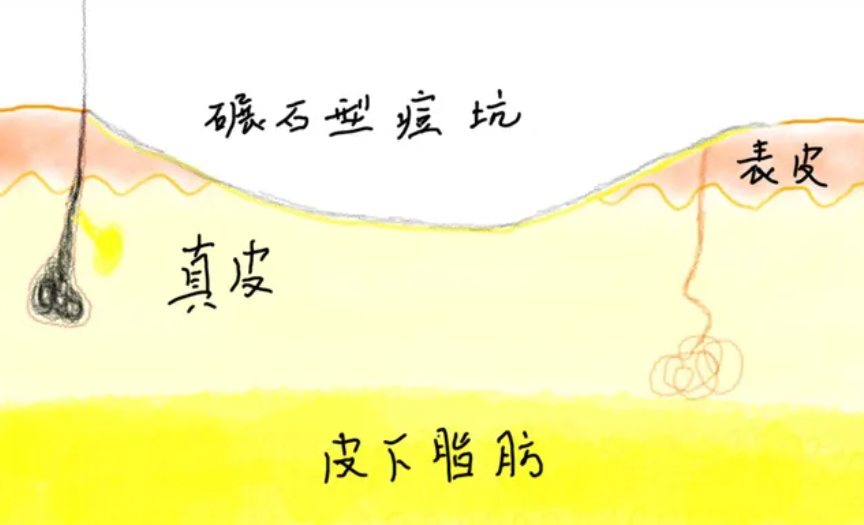 碾石型痘坑
表皮
真皮
皮下脂肪